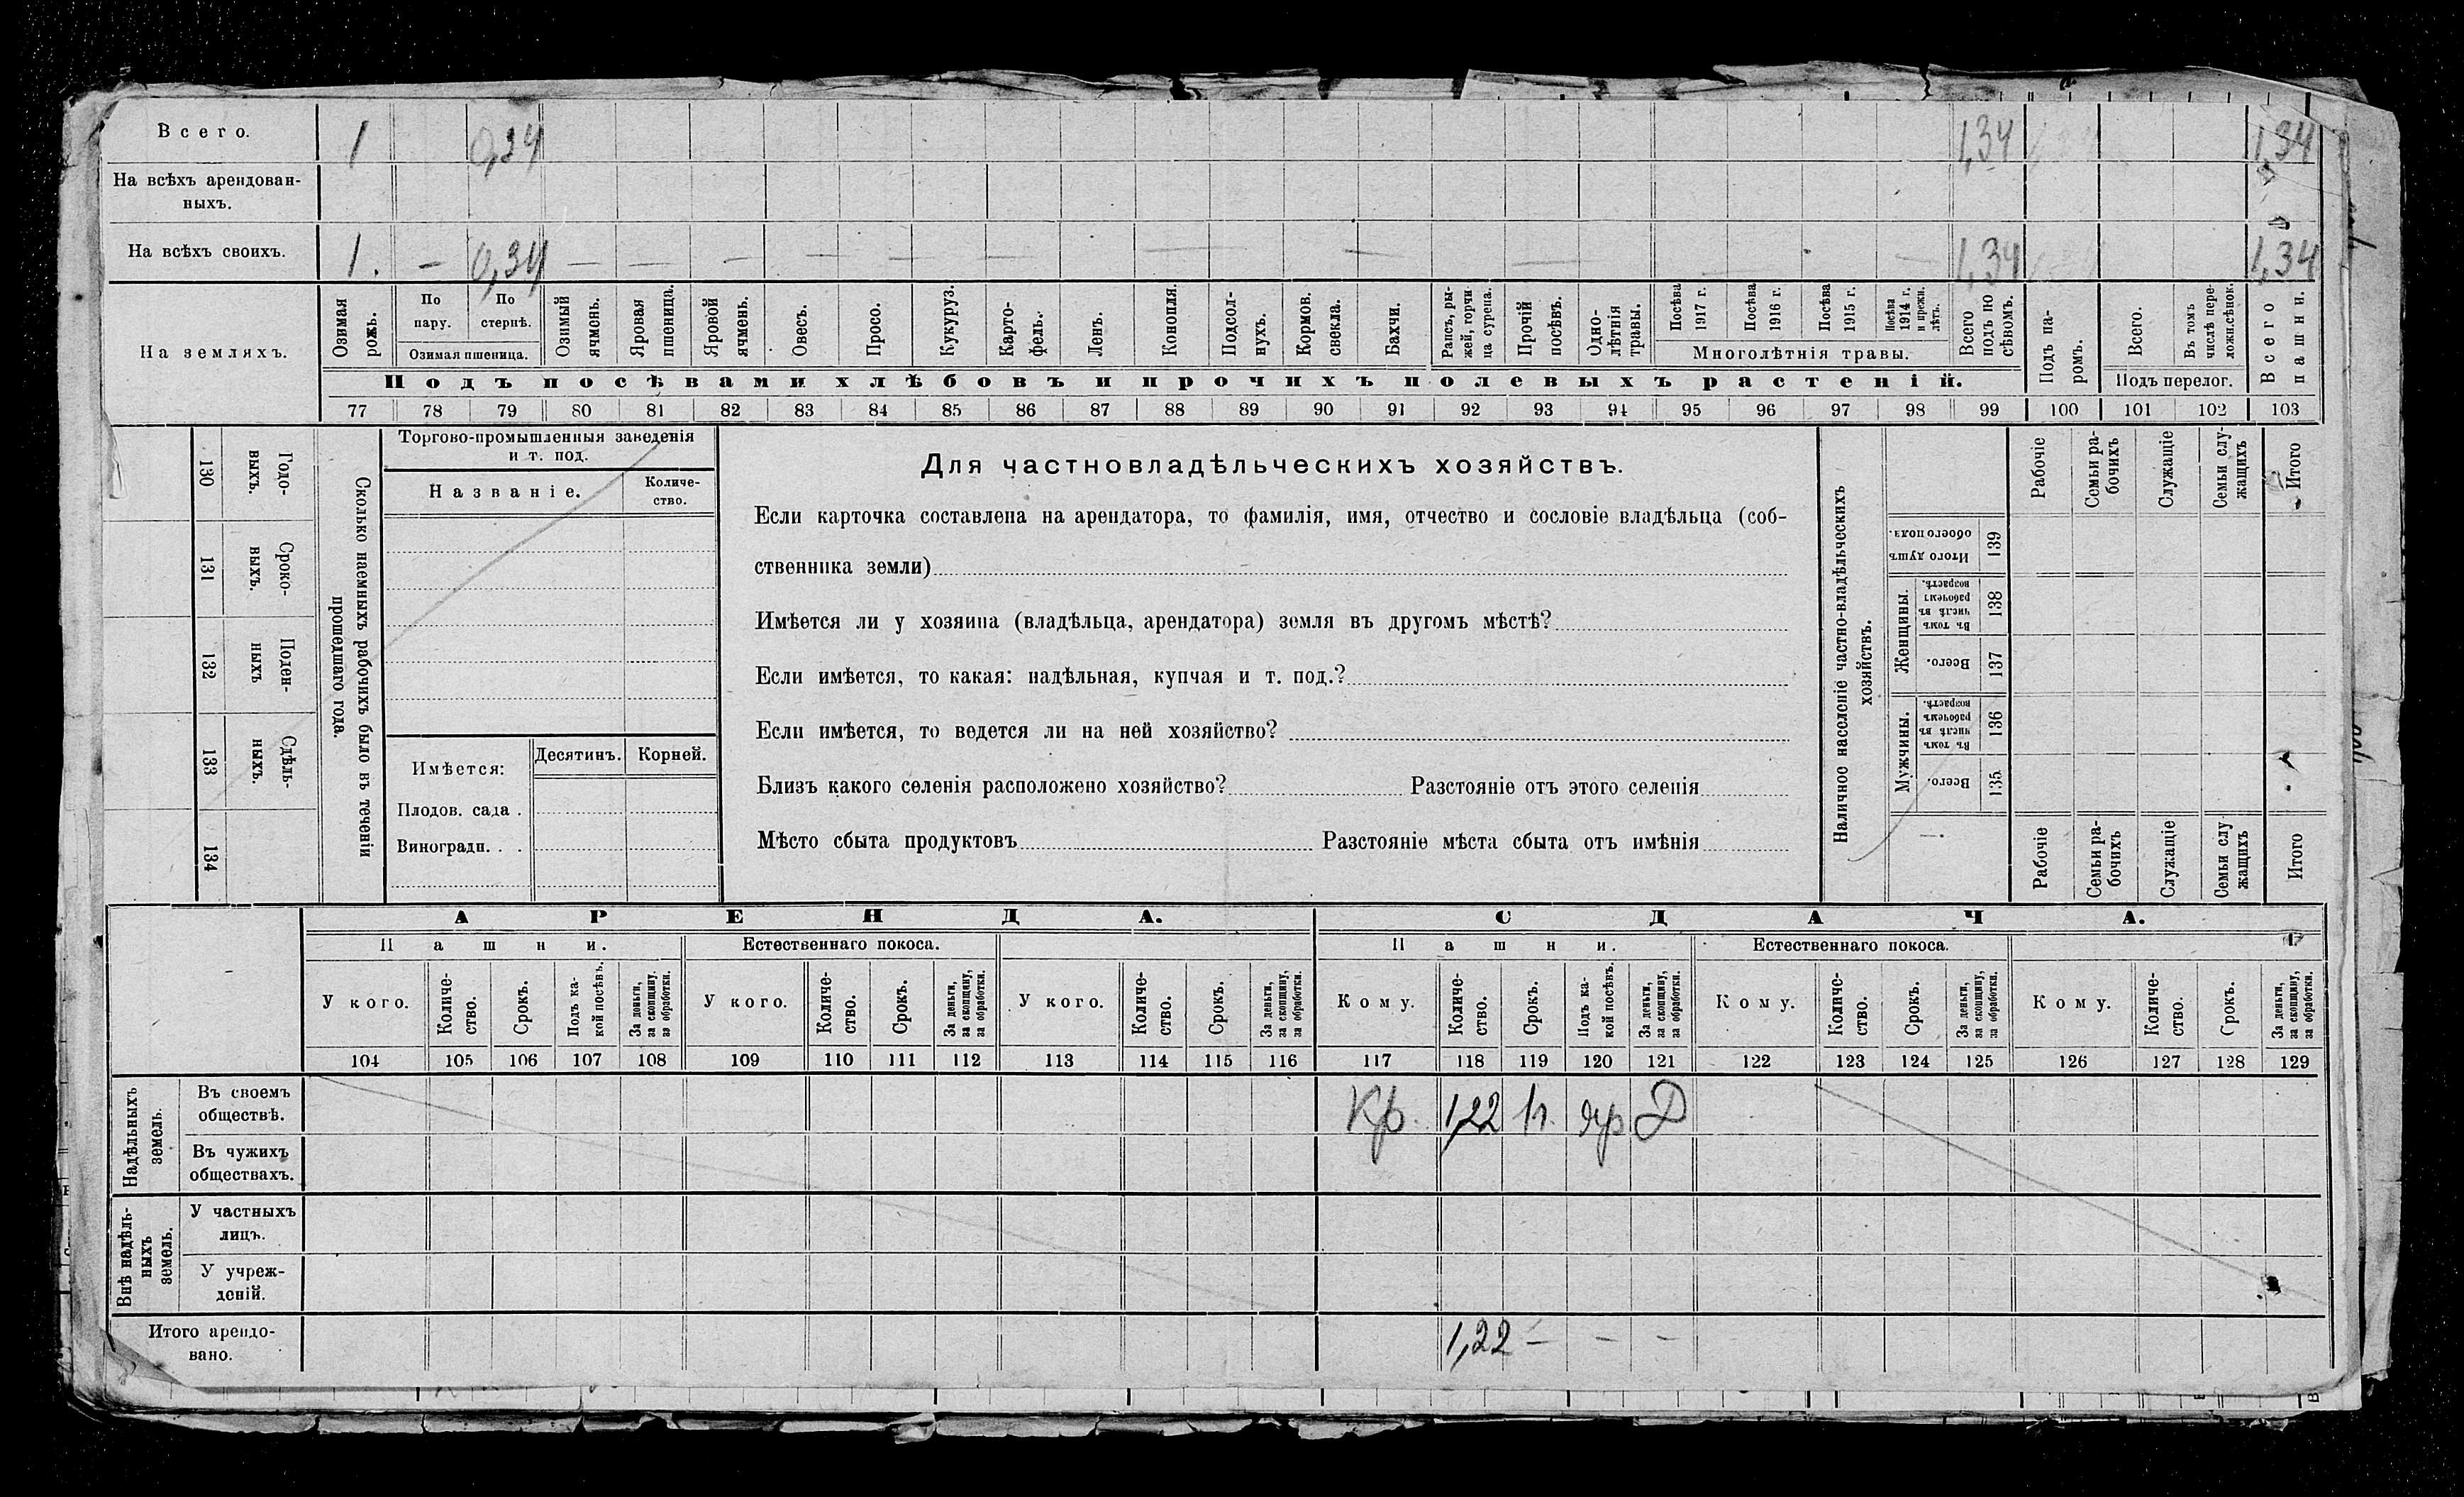 Всего. 1 0,34 1,34 1,34
На всѣхъ арендован-
ныхъ.
На всѣхъ своихъ. 1. – 0,34 — — — — — — — — — — — — 1,34 1,34
На земляхъ.
Озимая рожь.
По пару.
По стернѣ.
Озимая пшеница.
Озимый ячмень.
Яровая пшеница.
Яровой ячмень.
Овесъ.
Просо.
Кукуруз.
Карто-
фель.
Ленъ.
Конопля.
Подсол-
нухъ.
Кормов. свекла.
Бахчи.
Рапсъ, ры-
жей, горчи
ца сурепа.
Прочій посѣвъ.
Одно-
лѣтнія травы.
Посѣва 1917 г.
Посѣва 1916 г.
Посѣва 1915 г.
Посѣва 1914 г. и прежн. лѣтъ.
Многолѣтнія травы.
Всего подъ по
сѣвомъ.
Подъ па-
ромъ.
Всего.
Въ томъ числѣ пере-
ложн.сѣнок.
Подъ перелог.
Всего пашни.
Подъ посѣвами хлѣбовъ и прочихъ полевыхъ растеній.
77 78 79 80 81 82 83 84 85 86 87 88 89 90 91 92 93 94 95 96 97 98 99 100 101 102 103
130 Годо-
выхъ.
131 Сроко-
выхъ.
132 Поден-
ныхъ
133 Сдѣль-
ныхъ.
134
Сколько наемныхъ рабочихъ было въ теченіи
прошедшаго года.
Торгово-промышленныя заведенія
и т. под.
Названіе.
Количе-
ство.
Имѣется:
Десятинъ. Корней.
Плодов. сада .
Виноградн. . .
Для частновладѣльческихъ хозяйствъ.
Если карточка составлена на арендатора, то фамилія, имя, отчество и сословіе владѣльца (соб-
ственника земли)
Имѣется ли у хозяина (владѣльца, арендатора) земля въ другомъ мѣстѣ?
Если имѣется, то какая: надѣльная, купчая и т. под.?
Если имѣется, то ведется ли на ней хозяйство?
Близъ какого селенія расположено хозяйство? Разстояніе отъ этого селенія
Мѣсто сбыта продуктовъ Разстояніе мѣста сбыта отъ имѣнія
Наличное населеніе частно-владѣльческихъ
хозяйствъ.
Рабочіе
Семьи ра-
бочихъ
Служащіе
Семьи слу-
жащихъ
Итого
Итого душъ обоего пола. 139
Женщины.
Въ томъ числѣ въ рабочемъ возрастѣ. 138
Всего. 137
Мужчины.
Въ томъ числѣ въ рабочемъ возрастѣ. 136
Всего. 135
Рабочіе
Семьи ра-
бочихъ
Служащіе
Семьи слу
жащихъ
Итого
АРЕНДА. СДАЧА.
Пашни. Естественнаго покоса. Пашни. Естественнаго покоса.
У кого.
Количе-
ство.
Срокъ.
Подъ ка-
кой посѣвъ.
За деньги, за скопщину, за обработки.
У кого.
Количе-
ство.
Срокъ.
За деньги, за скопщину, за обработки.
У кого.
Количе-
ство.
Срокъ.
За деньги, за скопщину, за обработки.
Кому.
Количе-
ство.
Срокъ.
Подъ ка-
кой посѣвъ.
За деньги, за скопщину, за обработки.
Кому.
Количе-
ство.
Срокъ.
За деньги, за скопщину, за обработки.
Кому.
Количе-
ство.
Срокъ.
За деньги, за скопщину, за обработки.
104 105 106 107 108 109 110 111 112 113 114 115 116 117 118 119 120 121 122 123 124 125 126 127 128 129
Надѣльныхъ
земель.
Въ своемъ
обществѣ. Кр. 1,22 яр Д
Въ чужихъ
обществахъ.
Внѣ надѣль-
ныхъ
земель.
У частныхъ
лицъ.
У учреж-
деній.
Итого арендо-
вано. 1,22 – – –